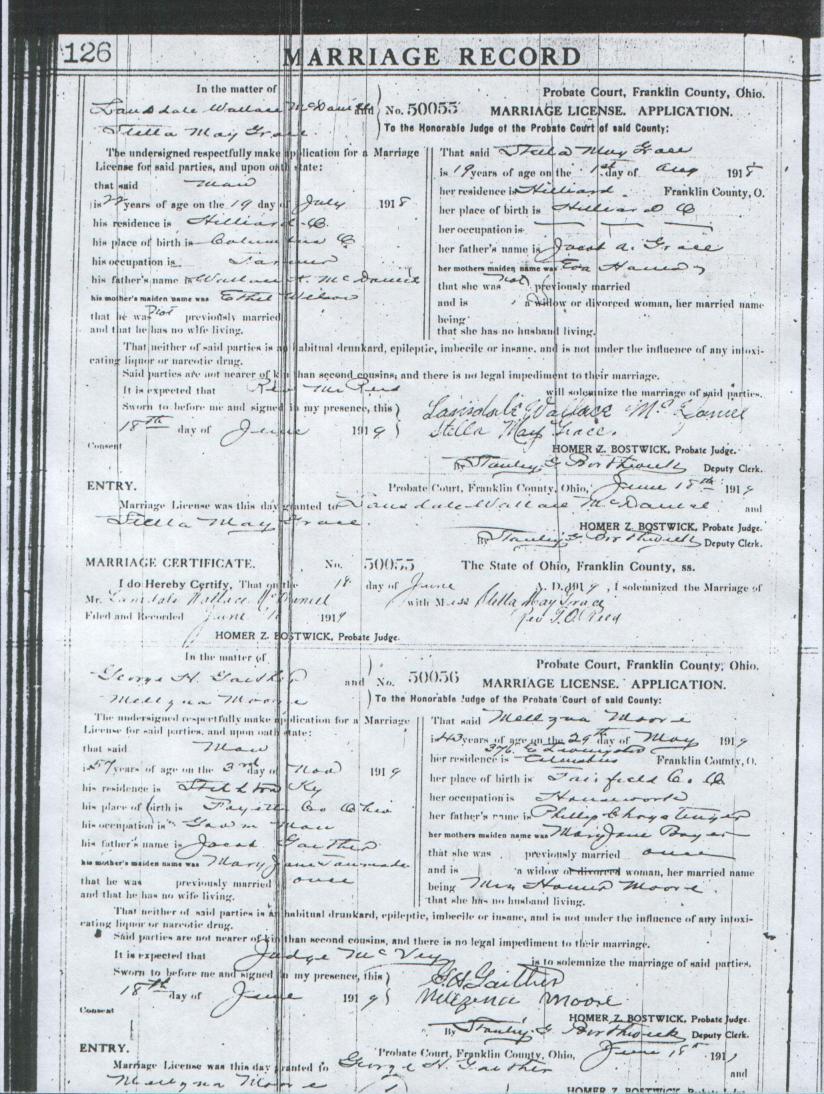 126 MARRIAGE RECORD
In the matter of
Lansdale Wallace McDaniel and
Stella May Grace
No. 50055
Probate Court, Franklin County, Ohio.
MARRIAGE LICENSE. APPLICATION.
To the Honorable Judge of the Probate Court of said County:
The undersigned respectfully make application for a Marriage
License for said parties, and upon oath state:
that said Man
is years of age on the 19 day of July 1918
his residence is Hilliard O.
his place of birth is Columbus O
his occupation is Farmer
his father's name is McDaniel
his mother's maiden name was Ethel Wilson
that he was not previously married
and that he has no wife living.
That said Stella May Grace
is 19 years of age on the 1st day of Aug 1918
her residence is Hilliard Franklin County, O.
her place of birth is Hilliard O
her occupation is
her father's name is Jacob A. Grace
her mothers maiden name was Eva
that she was not previously married
and is a widow or divorced woman, her married name
being
that she has no husband living.
That neither of said parties is an habitual drunkard, epileptic, imbecile or insane, and is not under the influence of any intoxi-
cating liquor or narcotic drug.
Said parties are not nearer of kin than second cousins, and there is no legal impediment to their marriage.
It is expected that Rev will solemnize the marriage of said parties.
Sworn to before me and signed in my presence, this
18th day of June 1919
Lansdale Wallace McDaniel
Stella May Grace.
Consent
HOMER Z. BOSTWICK, Probate Judge.
By Stanley G. Borthwick Deputy Clerk.
ENTRY.
Probate Court, Franklin County, Ohio, June 18th 1919
Marriage License was this day granted to Lansdale Wallace McDaniel and
Stella May Grace.
HOMER Z. BOSTWICK, Probate Judge.
By Stanley G. Borthwick Deputy Clerk.
MARRIAGE CERTIFICATE. No. 50055 The State of Ohio, Franklin County, ss.
I do Hereby Certify, That on the 18 day of June A. D. 1919, I solemnized the Marriage of
Mr. Lansdale Wallace McDaniel with Miss Stella May Grace
Filed and Recorded June 1919 Rev T.O. Reed
HOMER Z. BOSTWICK, Probate Judge.
In the matter of
George H. Gaither and
Mellzna Moore
No. 50056
Probate Court, Franklin County, Ohio.
MARRIAGE LICENSE. APPLICATION.
To the Honorable Judge of the Probate Court of said County
The undersigned respectfully make application for a Marriage
License for said parties, and upon oath state:
that said Man
is 57 years of age on the 3rd day of Nov 1919
his residence is Ky
his place of birth is Fayette Co Ohio
his occupation is Man
his father's name is Jacob Gaither
his mother's maiden name was Mary Jane
that he was previously married once
and that he has no wife living.
That said Mellzna Moore
is 43 years of age on the 29th day of May 1919
376 E Livingston
her residence is Columbus Franklin County, O.
her place of birth is Fairfield Co. O
her occupation is Housework
her father's name is Phillip
her mothers maiden name was Mary Jane
that she was previously married once
and is a widow or divorced woman, her married name
being Mrs Homer Moore.
that she has no husband living.
That neither of said parties is an habitual drunkard, epileptic, imbecile or insane, and is not under the influence of any intoxi-
cating liquor or narcotic drug.
Said parties are not nearer of kin than second cousins, and there is no legal impediment to their marriage.
It is expected that Judge McVey is to solemnize the marriage of said parties.
Sworn to before me and signed in my presence, this
18th day of June 1919
G.H. Gaither
Moore
Consent
HOMER Z. BOSTWICK, Probate Judge.
By Stanley G. Borthwick Deputy Clerk.
ENTRY.
Probate Court, Franklin County, Ohio, June 18th 191
Marriage License was this day granted to George H. Gaither and
Mellzna Moore
HOMER Z. BOSTWICK, Probate Judge.